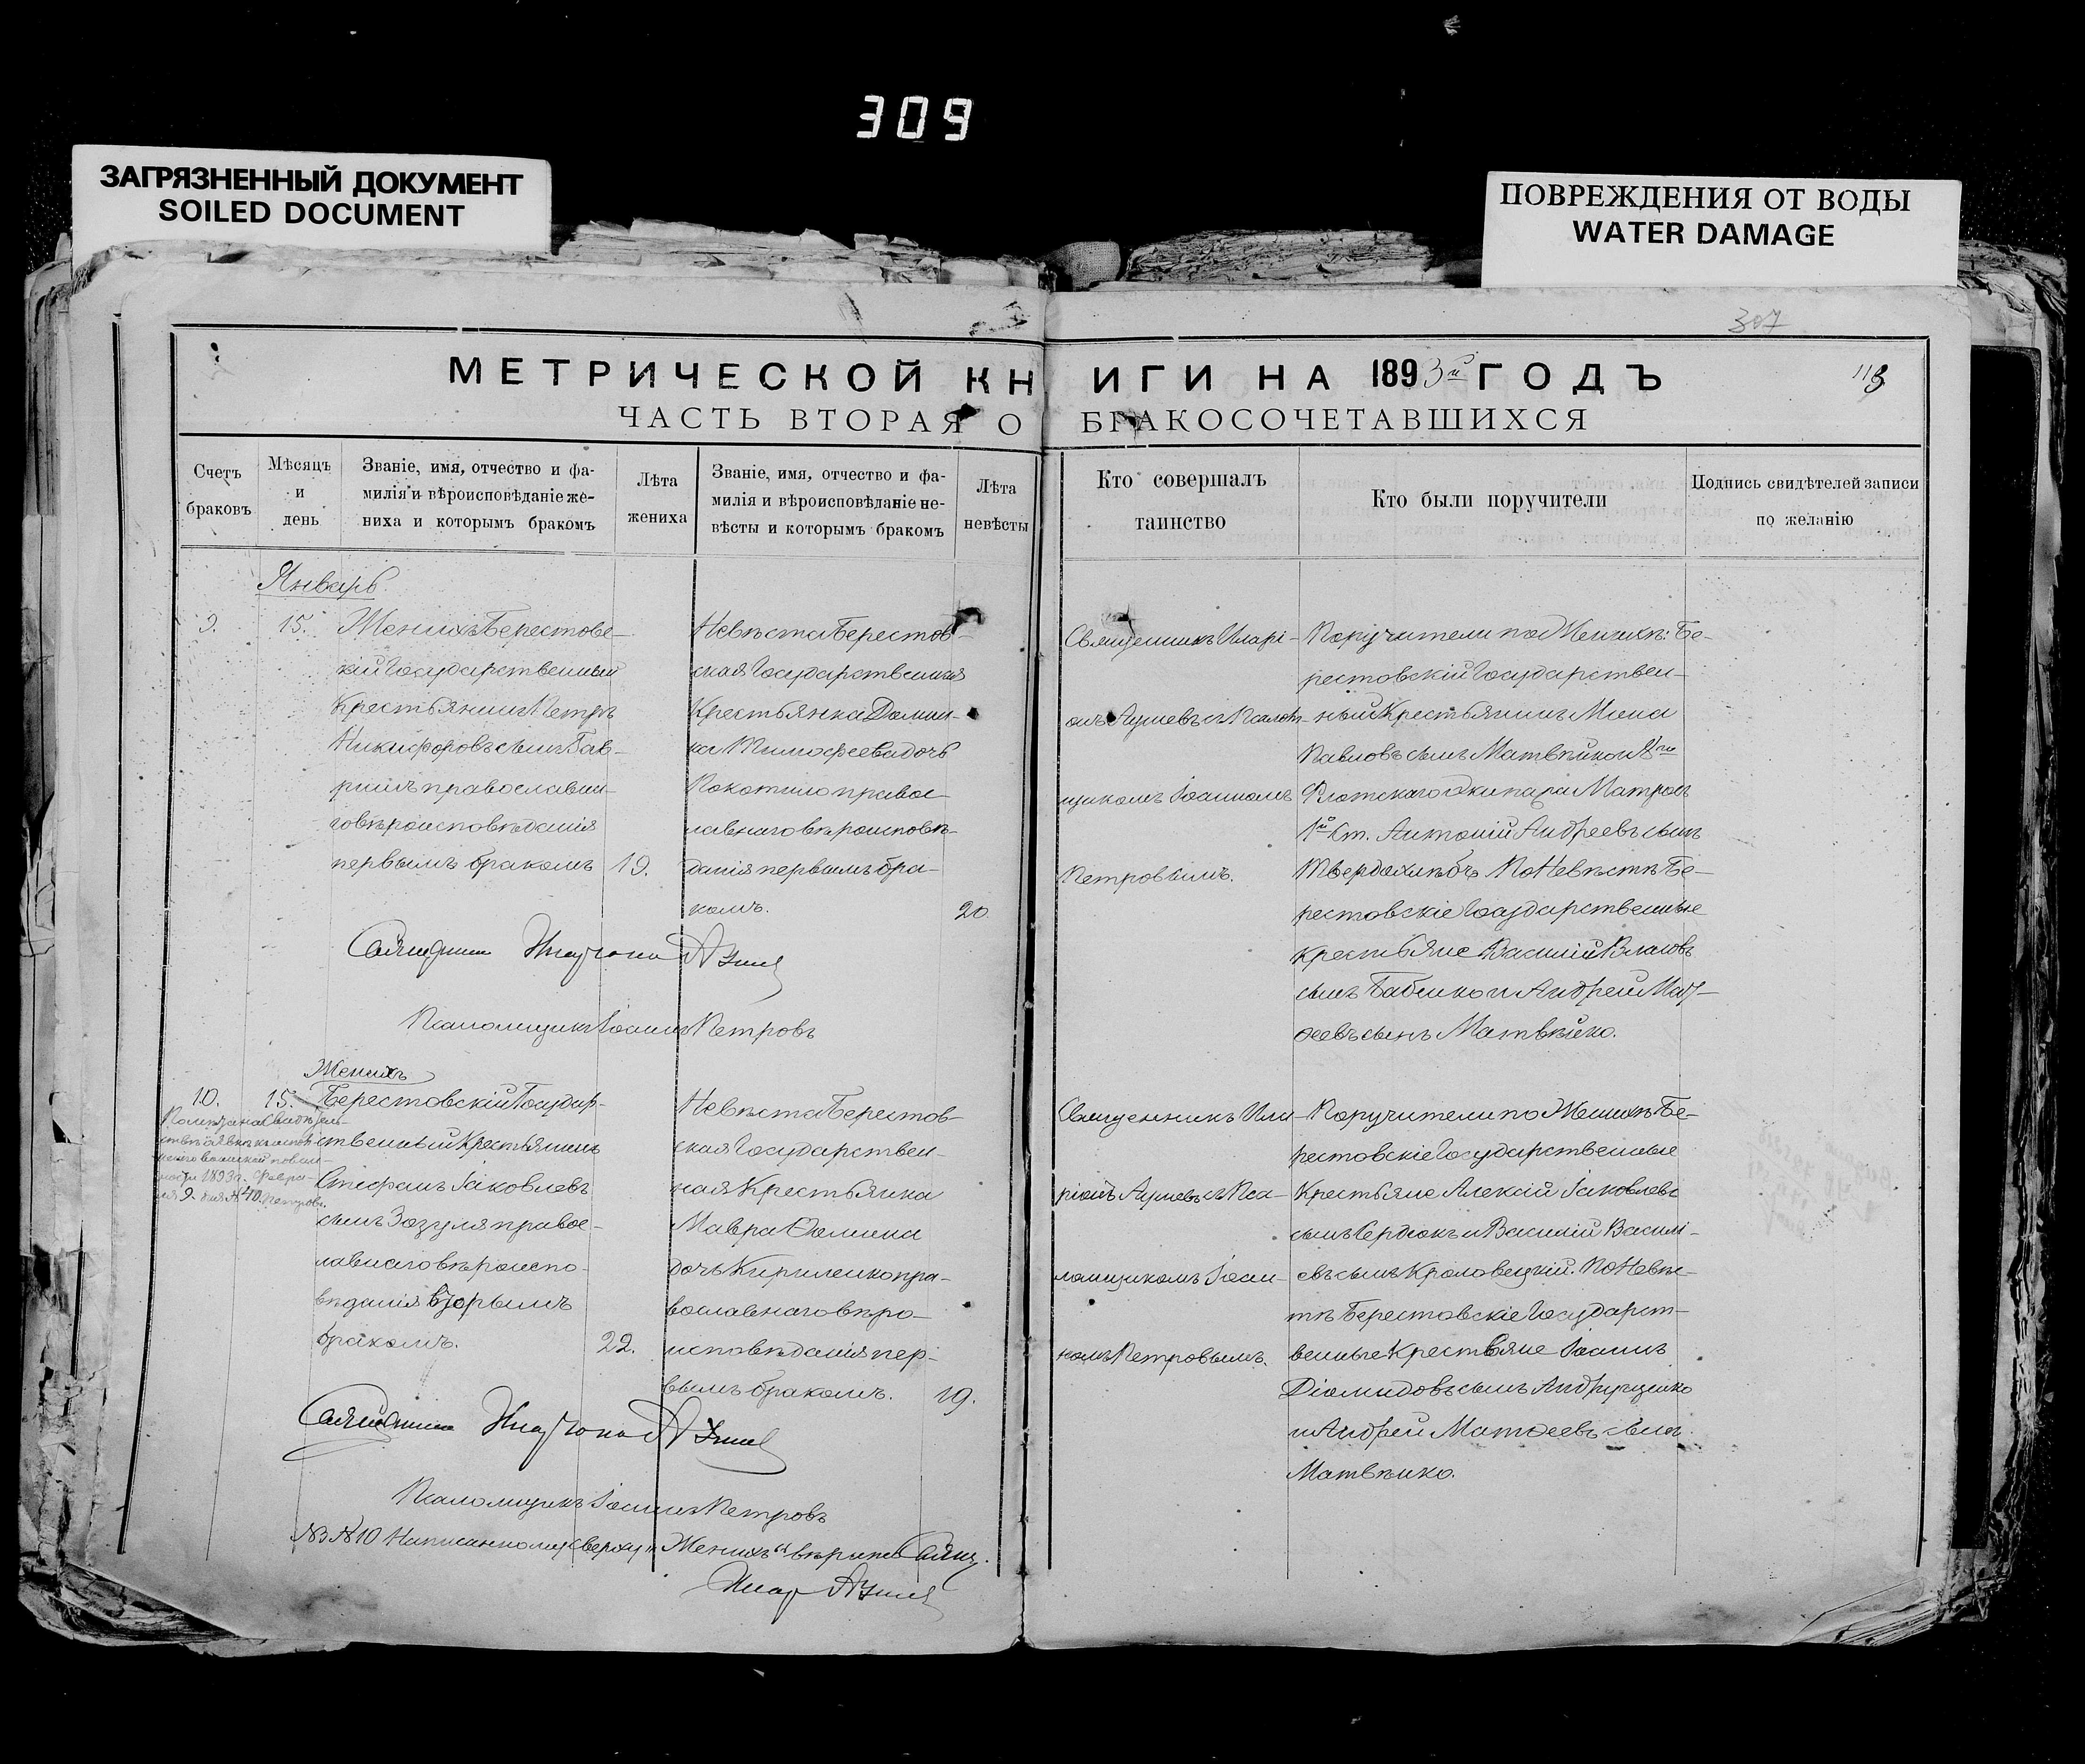 309
ЗАГРЯЗНЕННЫЙ ДОКУМЕНТ
SOILED DOCUMENT
ПОВРЕЖДЕНИЯ ОТ ВОДЫ
WATER DAMAGE
307
МЕТРИЧЕСКОЙ КНИГИ НА 1893й ГОДЪ
113
ЧАСТЬ ВТОРАЯ О БРАКОСОЧЕТАВШИХСЯ
Счетъ
браковъ
Мѣсяцъ
и
день
Званіе, имя, отчество и фа-
милія и вѣроисповѣданіе же-
ниха и которымъ бракомъ
Лѣта
жениха
Званіе, имя, отчество и фа-
милія и вѣроисповѣданіе не-
вѣсты и которымъ бракомъ
Лѣта
невѣсты
Кто совершалъ
таинство
Кто были поручители
Подпись свидѣтелей записи
по желанію
Январь
9.
15.
Женихъ Берестовс-
кій Государственный
Крестьянинъ Петръ
Никифоровъ сынъ Гав-
ришъ православна-
го вѣроисповѣданія
первымъ бракомъ
19.
Невѣста Берестов-
ская Государственная
Крестьянка Домни-
ка Тимофеева дочь
Покотило правос-
лавнаго вѣроисповѣ-
данія первымъ бра-
комъ.
20
Священникъ Иларі-
онъ съ Псалом-
щикомъ Іоанномъ
Петровымъ.
Поручители по Женихѣ: Бе-
рестовскій Государствен-
ный Крестьянинъ Мина
Павловъ сынъ Матвѣйко и
Флотскаго Экипажа Матросъ
1й Ст. Антоній Андреевъ сынъ
Твердохлѣбъ По Невѣстѣ Бе-
рестовскіе Государственные
крестьяне Василій Власовъ
сынъ Бабенко и Андрей Мат-
ѳеевъ сынъ Матвѣйко.
Священникъ
Псаломщикъ Іоаннъ Петровъ
Женихъ
10.
15.
Берестовскій Государ-
ственный Крестьянинъ
Стефанъ Іаковлевъ
сынъ Зозуля правос-
лавнаго вѣроиспо-
вѣданія вторымъ
бракомъ.
22.
Невѣста Берестов-
ская Государствен-
ная Крестьянка
Мавра Ѳомина
дочь Кириленко пра-
вославнаго вѣро-
исповѣданія пер-
вымъ бракомъ.
19.
Священникъ Ила-
ріонъ съ Пса-
ломщикомъ Іоан-
номъ Петровымъ.
Поручители по Женихѣ Бе-
рестовскіе Государственные
Крестьяне Алексій Іаковлевъ
сынъ Сердюкъ и Василій Василі-
евъ сынъ Кроловецкій. По Невѣс-
тѣ Берестовскіе Государст-
венные Крестьяне Іоаннъ
Діомидовъ сынъ Андрущенко
и Андрей Матѳеевъ сынъ
Матвѣйко.
Священникъ
Псаломщикъ Іоаннъ Петровъ
№10 Написанному сверху „Женихъ" вѣрить Свящ.